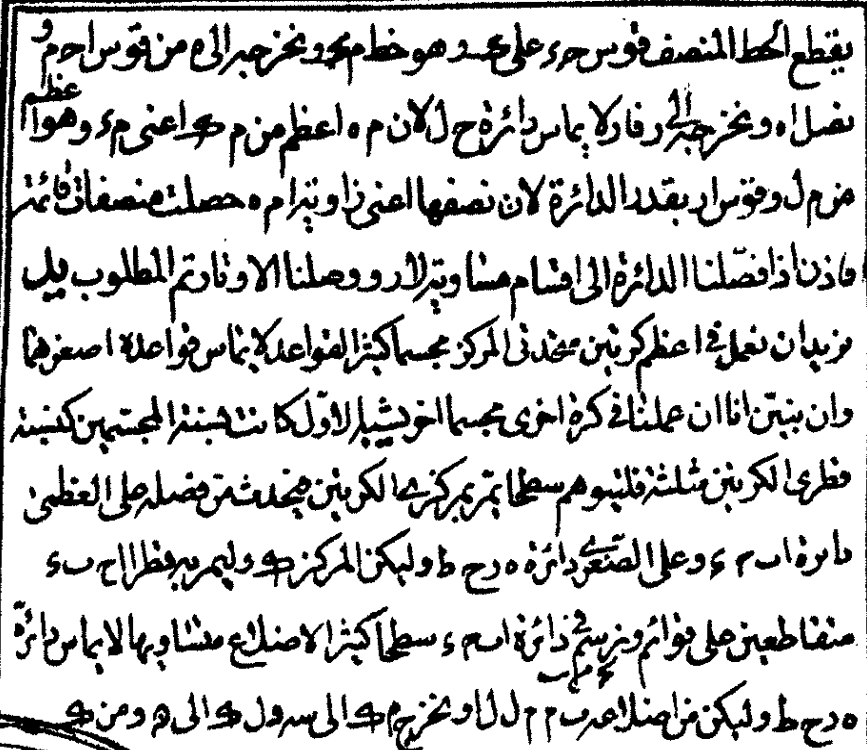 يقطع الخط المنصف قوس حء على عـ وهو خط م عـ ونخرجه الى ه من قوس احم و
نصل اه ونخرجه الى ر فار لا يماس دائرة ح ل لان م ه اعظم من م ك اعنى م ء وهو اعظم
من م ل وقوس ار بقدر الدائرة لان نصفها اعنى زاوية ام ه حصلت منصفات قائمة
فاذن اذا فصلنا الدائرة الى اقسام مساوية لار ووصلنا الاوتار تم المطلوب يل
نريد ان نعمل فى اعظم كرتين متحدتى المركز مجسما كثير القواعد لا يماس قواعده اصغرهما
وان نبين انا ان عملنا فى كرة اخرى مجسما اخر يشبه الاول كانت نسبة المجسمين كنسبة
قطرى الكرتين مثلثة فليتوهم سطحا يمر بمركزى الكرتين فيحدث من فصله على العظمى
دائرة اب ح ء وعلى الصغرى دائرة ه ر ح ط وليكن المركز ك وليمر به قطرا اح ب ء
متقاطعين على قوائم ونرسم فى دائرة اب ح ء سطحا كثير الاضلاع متساويها لا يماس دائرة
ه ر ح ط وليكن من اضلاعه ب م م ل ل ا ونخرج م ك الى س و ل ك الى ه ومن ك